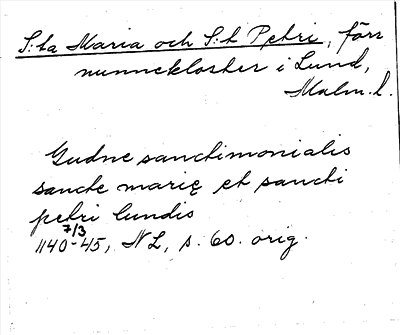 S:ta Maria och S:t Petri, förs
nunnekloster i Lund,
Malm. l.
Gudne sanctimonialis
sancte marię et sancti
petri lundis
7/3
1140-45, NL, s. 60. orig.